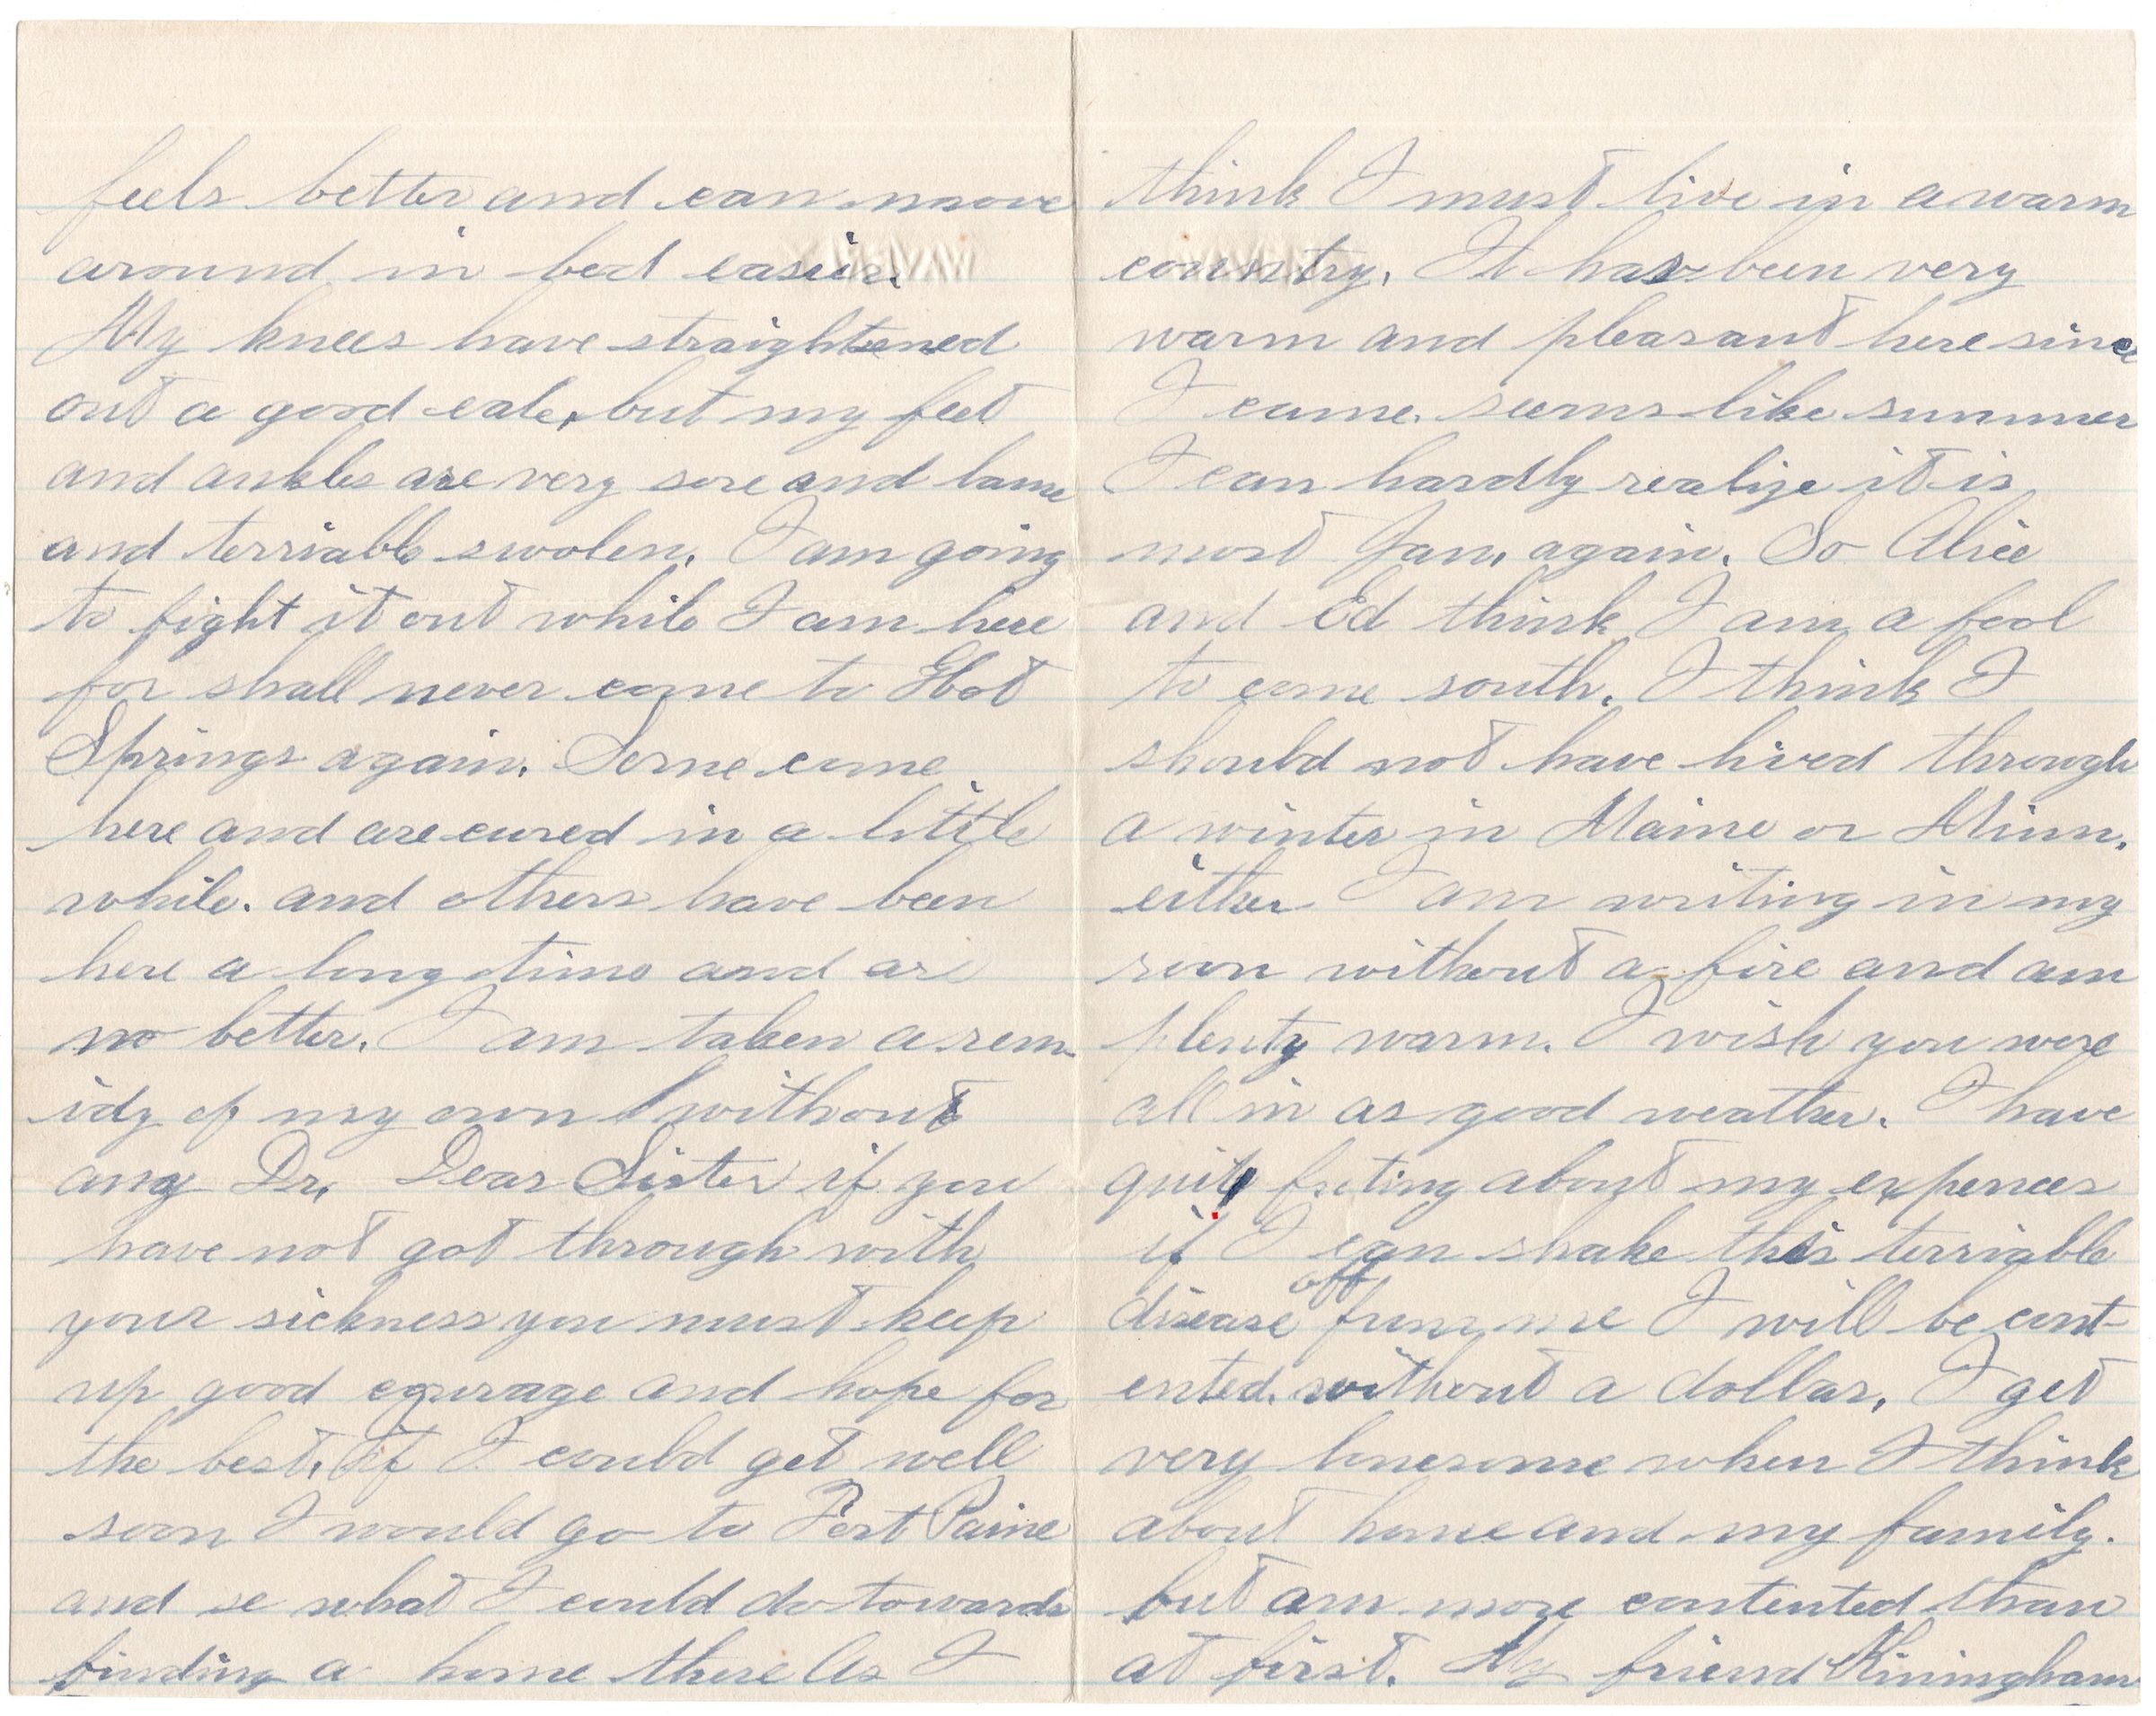 feels better and can move
around in bed easier.
My knees have straightened
out a good eale, but my feet
and ankles are very sore and lame
and terriable swolen. I am going
to fight it out while I am here
for shall never come to Hot
Springs again. Some come
here and are cured in a little
while. and others have been
here a long time and are
no better. I am taken a rem-
idy of my own without
any Dr. Dear Sister if you
have not got through with
your sickness you must keep
up good courage and hope for
the best. if I could get well
soon I would go to Fort Paine
and se what I could do towards
finding a home there As I
think I must live in a warm
country. It has been very
warm and pleasant here since
I came. seems like summer
I can hardly realize it is
most Jan. again. So Alice
and Ed think I am a fool
to come south. I think I
should not have lived through
a winter in Maine or Minn.
either I am writing in my
room without a fire and am
plenty warm. I wish you were
all in as good weather. I have
quit freting about my expences
if I can shake this terriable
disease off from me I will be cont-
ented. without a dollar. I get
very lonesome when I think
about home and my family.
but am more contented than
at first. My friend Kiningham